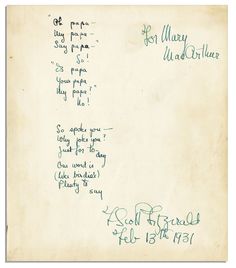 "Oh papa—
My papa—
Say papa—"
So!
"Is papa
Your papa
My papa?"
No!
So spoke you—
Why joke you?
Just for to-day
Our word is
(like birdies)
Plenty to say
For Mary
MacArthur
F Scott Fitzgerald
Feb 13th 1931